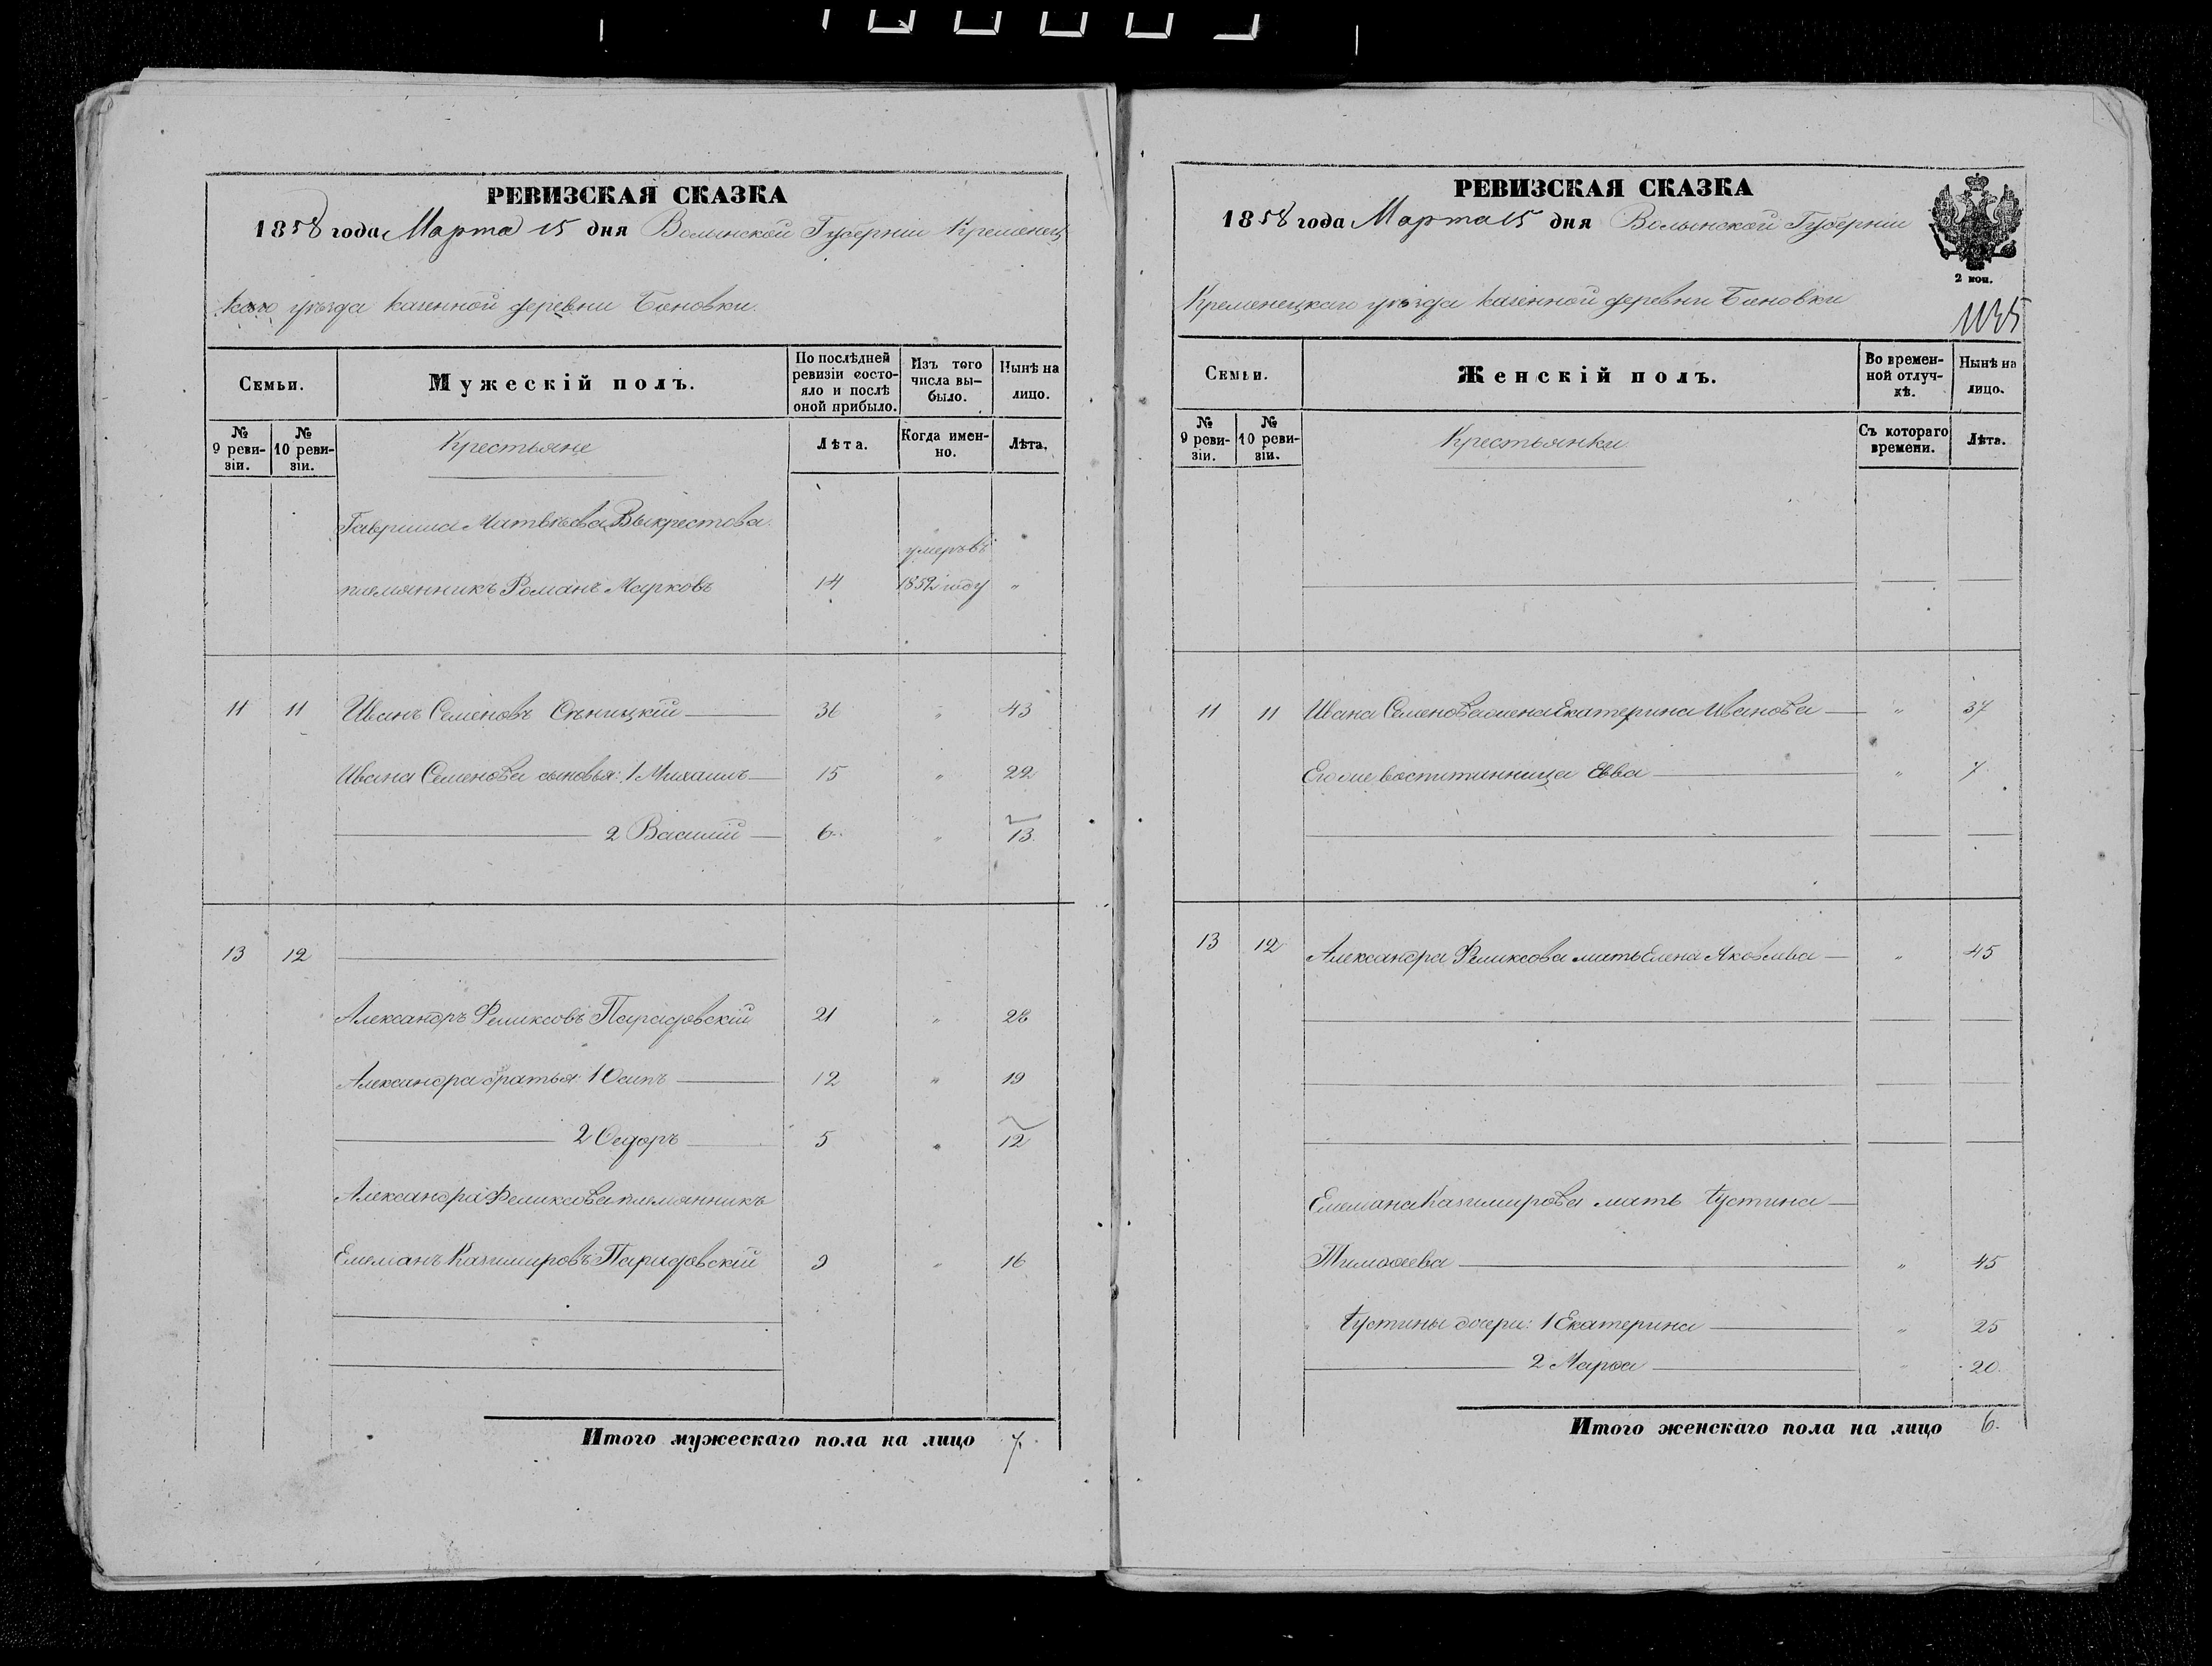 РЕВИЗСКАЯ СКАЗКА
1858 года Марта 15 дня Волынской Губерніи Кременец
каго уѣзда казенной деревни Бановки.
Семьи.
Мужескій полъ.
По послѣдней ревизіи состояло и послѣ оной прибыло.
Изъ того числа выбыло.
Нынѣ на лицо.
№ 9 ревизіи.
№ 10 ревизіи.
Крестьяне
Лѣта.
Когда именно.
Лѣта.
Гавриила Матвѣева Выкрестова
племянникъ Романъ Марковъ 14 умеръ въ 1852 году "
11 11 Иванъ Семеновъ Сѣницкій 36 " 43
Ивана Семенова сыновья: 1 Михаилъ 15 " 22
2 Василій 6 " 13
13 12
Александръ Феликсовъ Парадовскій 21 " 28
Александра братья: 1 Осипъ 12 " 19
2 Ѳедоръ 5 " 12
Александра Феликсова племянникъ
Емеліанъ Казимировъ Парадовскій 9 " 16
Итого мужескаго пола на лицо 7.
РЕВИЗСКАЯ СКАЗКА
1858 года Марта 15 дня Волынской Губерніи
2 коп.
Кременецкаго уѣзда казенной деревни Бановки
Семьи.
Женскій полъ.
Во временной отлучкѣ.
Нынѣ на лицо.
№ 9 ревизіи.
№ 10 ревизіи.
Крестьянки
Съ котораго времени.
Лѣта.
11 11 Ивана Семенова жена Екатерина Иванова " 37
Его же воспитанница Евва " 7
13 12 Александра Феликсова мать Елена Яковлева " 45
Емеліана Казимирова мать Іустина
Тимоѳеева " 45
Іустины дочери: 1 Екатерина " 25
2 Марѳа " 20.
Итого женскаго пола на лицо 6.